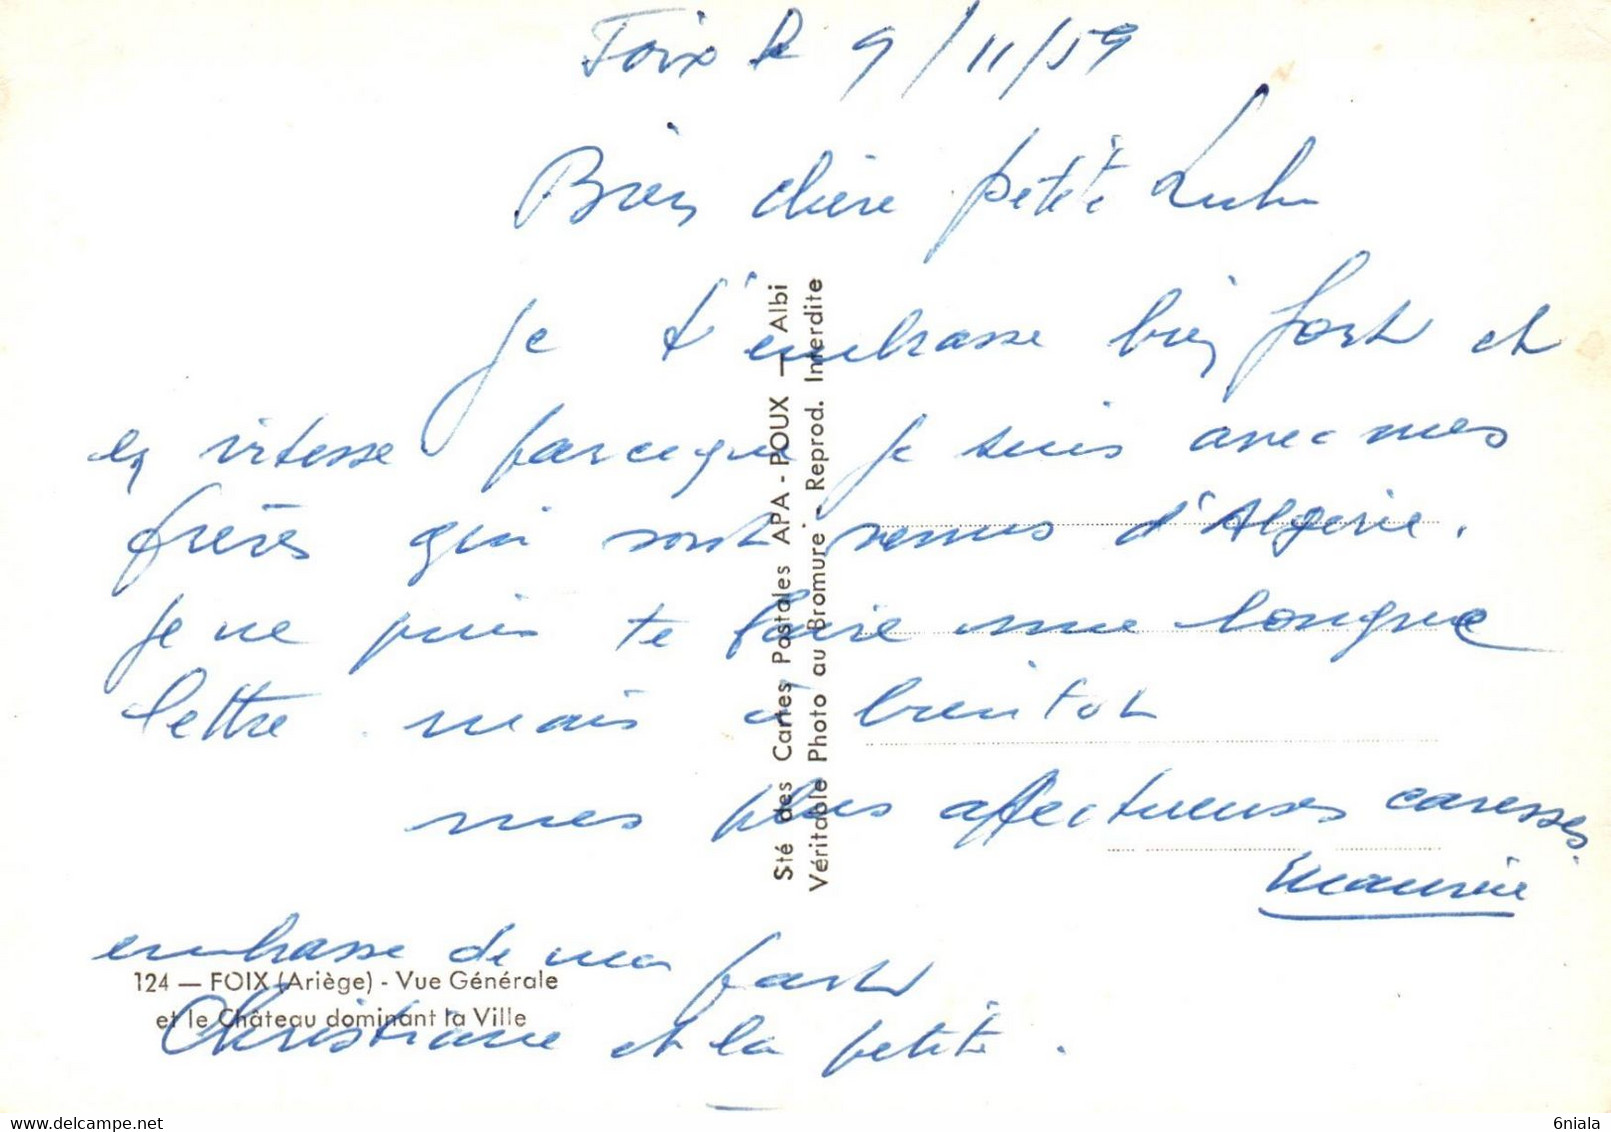 Foix le 9/11/59
Bien chère petite Lulu
Je t'embrasse bien fort et
en vitesse parceque je suis avec mes
frères qui sont venus d'Algérie.
Je ne puis te faire une longue
lettre mais à bientot
mes plus affectueuses caresses.
embrasse de ma part
Christiane et la petite.
124 — FOIX (Ariège) - Vue Générale
et le Château dominant la Ville
Sté des Cartes Postales APA - POUX — Albi
Véritable Photo au Bromure - Reprod. Interdite
6niala